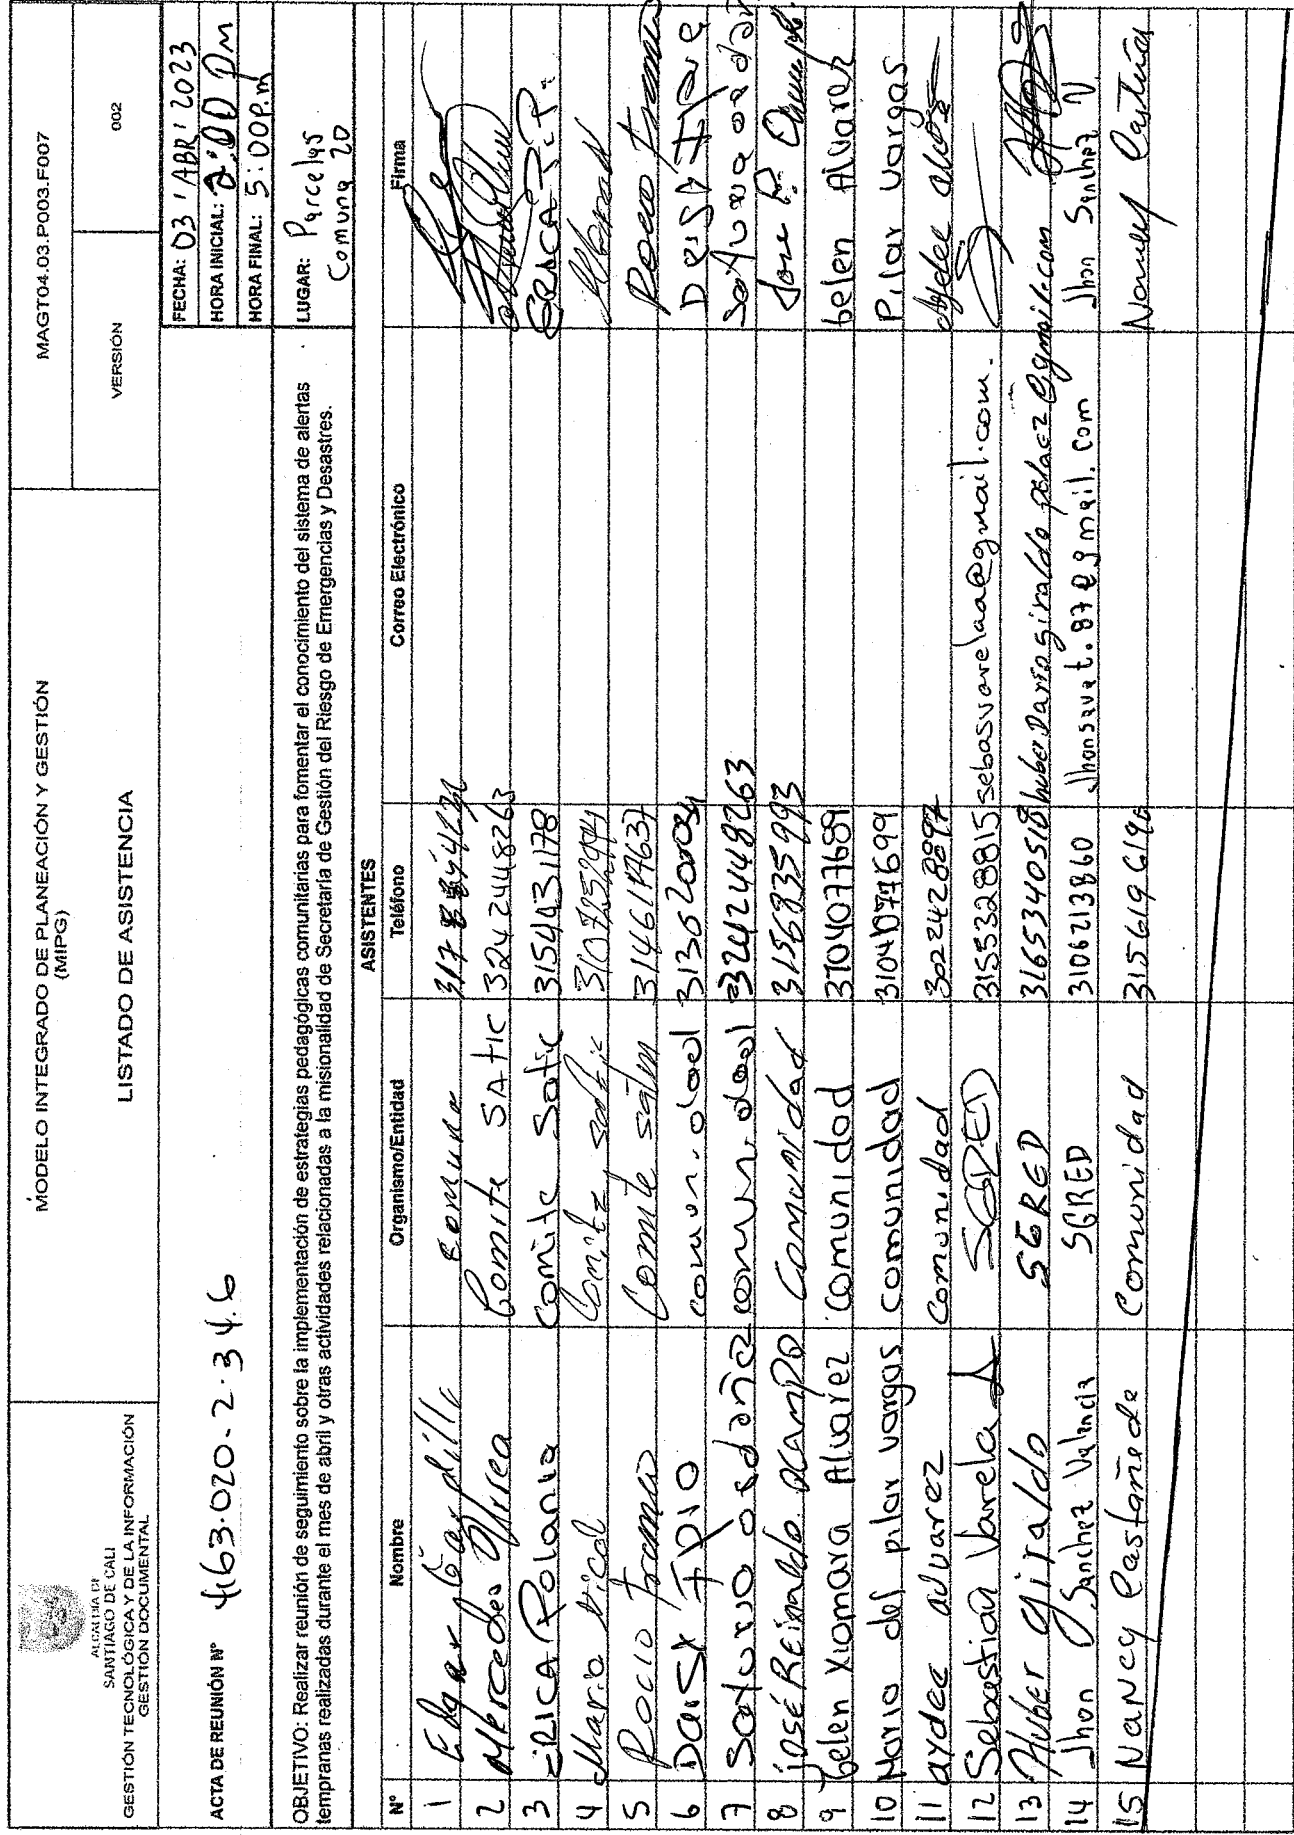 ALCALDÍA DE
SANTIAGO DE CALI
GESTIÓN TECNOLÓGICA Y DE LA INFORMACIÓN
GESTIÓN DOCUMENTAL
MODELO INTEGRADO DE PLANEACIÓN Y GESTIÓN
(MIPG)
LISTADO DE ASISTENCIA
MAGT04.03.P003.F007
VERSIÓN 002
ACTA DE REUNIÓN Nº 4163.020.2.34.6
FECHA: 03 ABRI 2023
HORA INICIAL: 2:00 Pm
HORA FINAL: 5:00 P.m
OBJETIVO: Realizar reunión de seguimiento sobre la implementación de estrategias pedagógicas comunitarias para fomentar el conocimiento del sistema de alertas
tempranas realizadas durante el mes de abril y otras actividades relacionadas a la misionalidad de Secretaría de Gestión del Riesgo de Emergencias y Desastres.
LUGAR: Parcelas
Comuna 20
ASISTENTES
Nº Nombre Organismo/Entidad Teléfono Correo Electrónico Firma
1 Edgar
2 Mercedes Comite SATIC 3242448263
3 ERICA Polania Comite Satic 3154431178 ERICA P.
4 Maria
5 Rocio Comite Rocio
6 Daisy comunidad
7 Saturia comunidad 3242448263
8 José Reinaldo OCAMPO Comunidad 3156835993 Jose R.
9 belen Xiomara Alvarez Comunidad 3104077689 belen Alvarez
10 Maria del pilar vargas comunidad 3104077699 Pilar vargas
11 aydee alvarez Comunidad 3022428897 Aydee
12 Sebastián Varela A SGRED 3155328815 sebasvarelaa@gmail.com.
13 Huber Giraldo SGRED 3165340518
14 Jhon J Sanchez Valencia SGRED 3106213860 Jhon Sanchez V
15 NANCY Castañeda Comunidad 3156196190 Nancy Castañeda